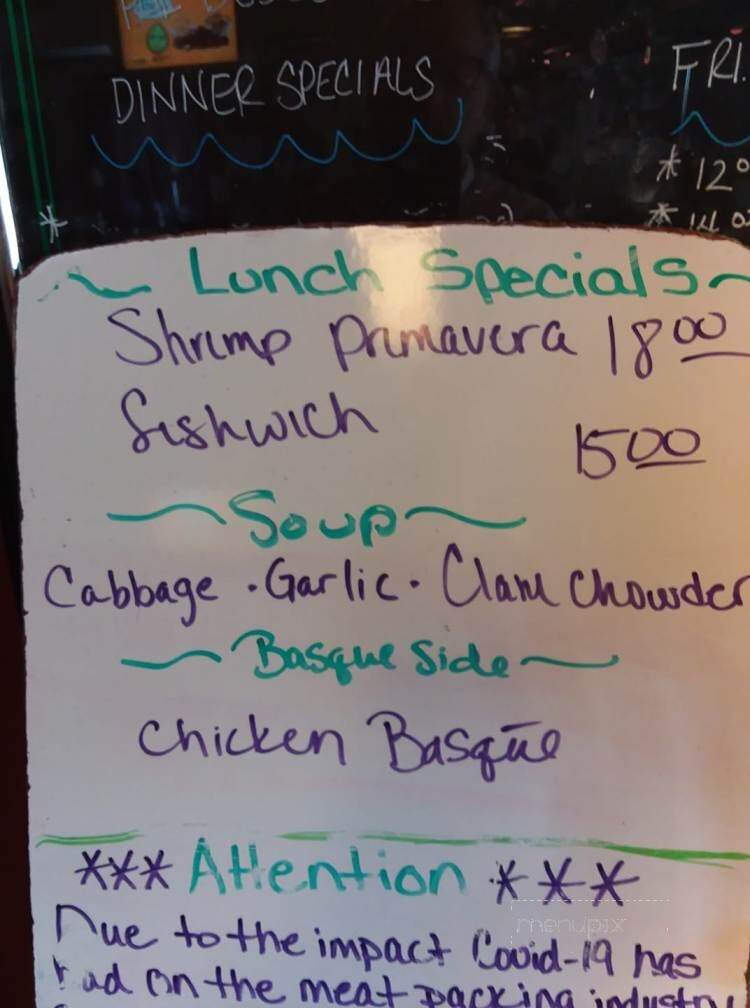 DINNER SPECIALS
FRI.
* 12
* 14 o
*
Lunch Specials
Shrimp primavera 18 00
fishwich 15 00
Soup
Cabbage · Garlic · Clam Chowder
Basque Side
Chicken Basque
*** Attention ***
Due to the impact Covid-19 has
had on the meat packing industry
menupix